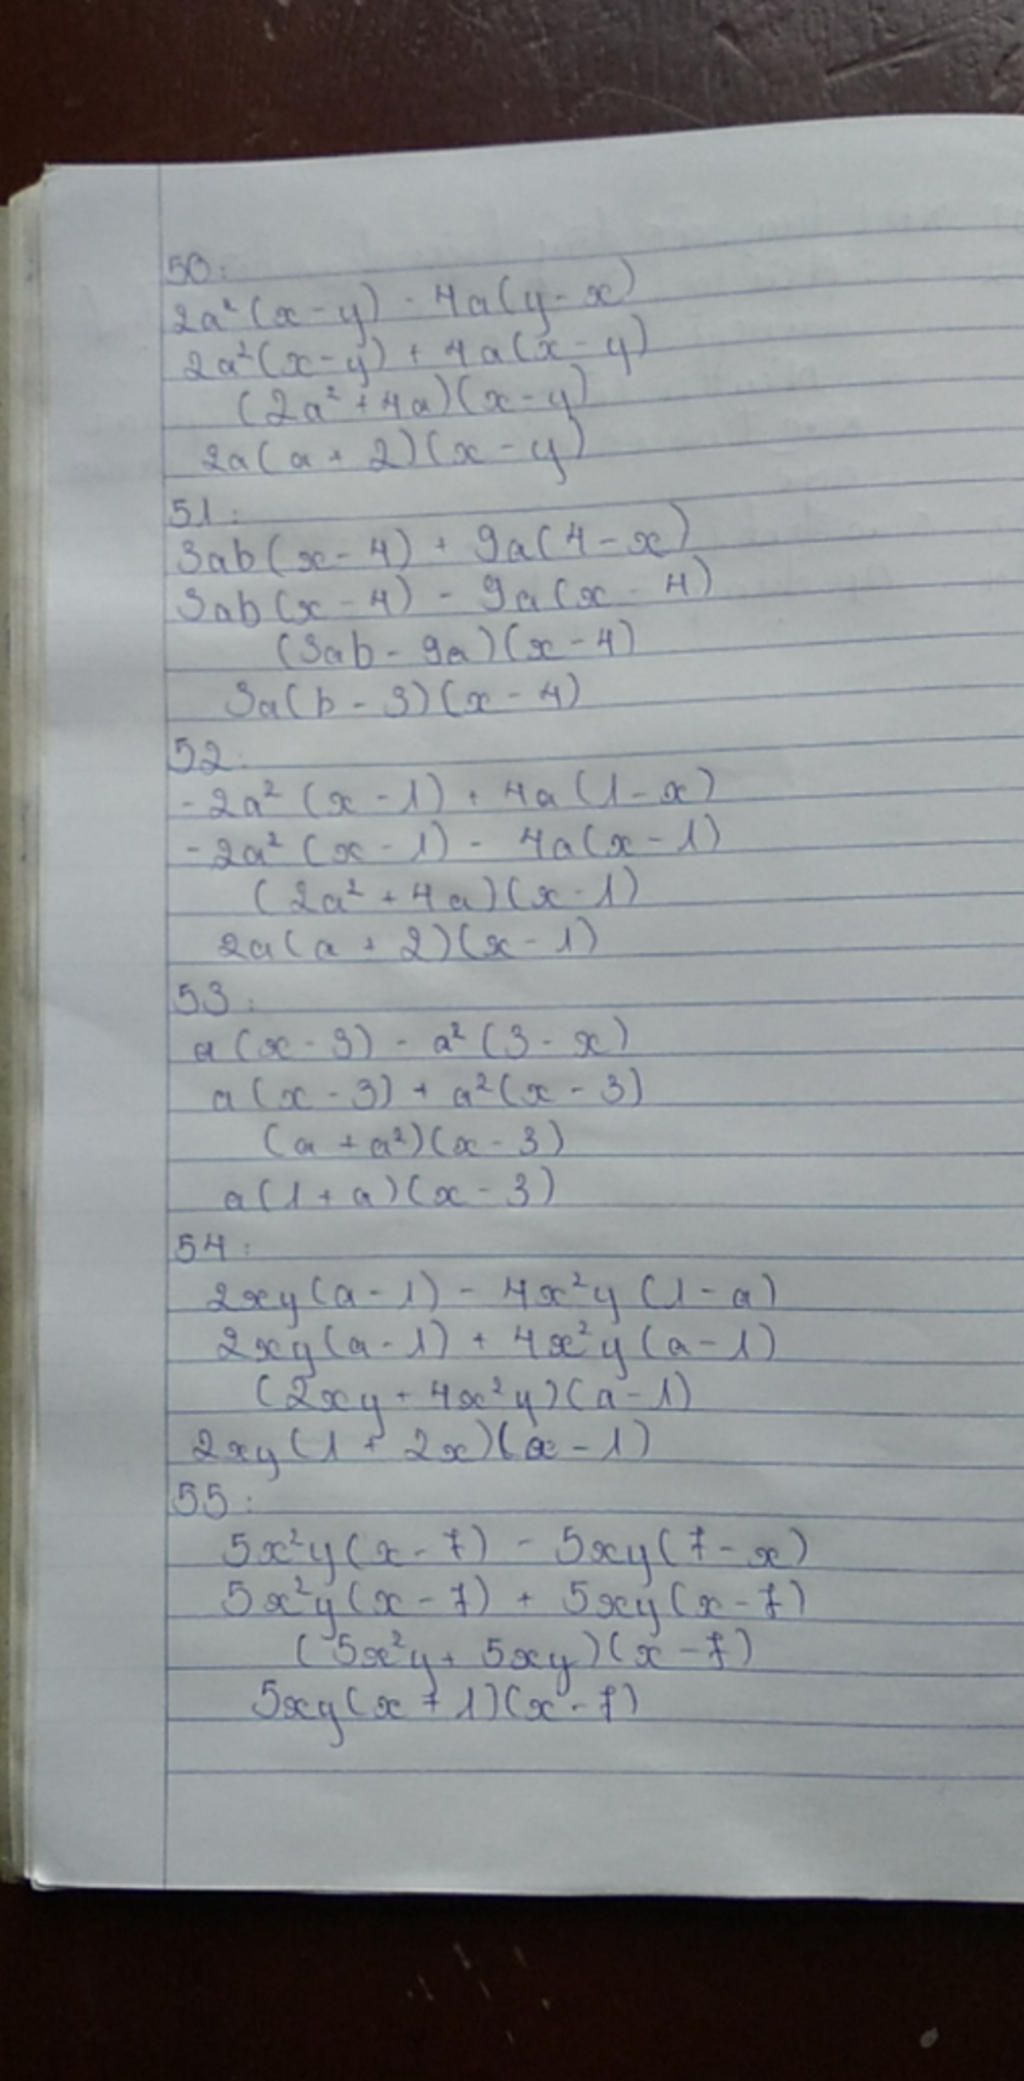 50:
2a²(x-y) - 4a(y-x)
2a²(x-y) + 4a(x-y)
(2a²+4a)(x-y)
2a(a+2)(x-y)
51:
3ab(x-4) + 9a(4-x)
3ab(x-4) - 9a(x-4)
(3ab-9a)(x-4)
3a(b-3)(x-4)
52:
-2a²(x-1) + 4a(1-x)
-2a²(x-1) - 4a(x-1)
(2a²+4a)(x-1)
2a(a+2)(x-1)
53:
a(x-3) - a²(3-x)
a(x-3) + a²(x-3)
(a+a²)(x-3)
a(1+a)(x-3)
54:
2xy(a-1) - 4x²y(1-a)
2xy(a-1) + 4x²y(a-1)
(2xy+4x²y)(a-1)
2xy(1+2x)(a-1)
55:
5x²y(x-7) - 5xy(7-x)
5x²y(x-7) + 5xy(x-7)
(5x²y+5xy)(x-7)
5xy(x+1)(x-7)